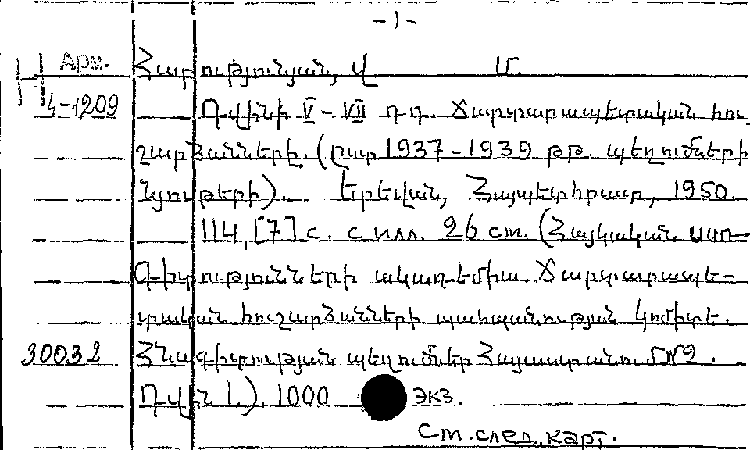 -1-
Арм. Հարությունյան, Վ. Մ.
4-1209 Դվինի V-VII դ.դ. Ճարտարապետական հու-
շարձանները. (ըստ 1937-1939 թթ պեղումների
նյութերի). Երեվան, Հայպետհրատ, 1950.
114, [7] с. с илл. 26 см. (Հայկական ՍՍՌ
Գիտությունների ակադեմիա Ճարտարապե-
տական հուշարձանների պահպանության կոմիտե.
30032 Հնագիտության պեղումներ Հայաստանում №2.
Դվին I.). 1000 экз.
См. след. карт.